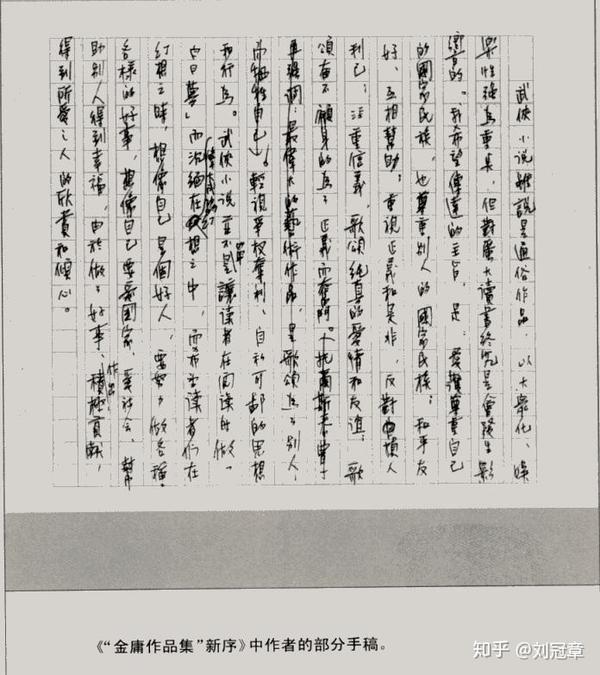 武俠小說雖說是通俗作品，以大眾化、娛
樂性強為重點，但對廣大讀者終究是會發生影
響的。我希望傳達的主旨，是：愛護尊重自己
的國家民族，也尊重別人的國家民族；和平友
好，互相幫助；重視正義和是非，反對損人
利己；注重信義，歌頌純真的愛情和友誼；歌
頌奮不顧身的為了正義而奮鬥。托爾斯泰曾
再強調，最偉大的藝術作品，是歌頌為了別人，
而犧牲自己」！輕視爭權奪利、自私可鄙的思想
和行為。武俠小說並不單是讓讀者在閱讀時做「
白日夢」而沉緬在偉大成功的幻想之中，而希望讀者們在
幻想之時，想像自己是個好人，要努力做各種
各樣的好事，想像自己要愛國家、愛社會、幫
助別人得到幸福，由於做了好事、作出積極貢獻，
得到所愛之人的欣賞和傾心。
《“金庸作品集”新序》中作者的部分手稿。
知乎 @刘冠章